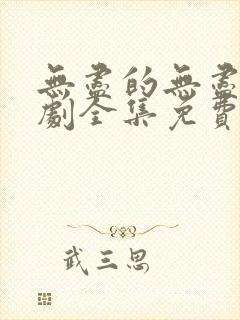 無盡的無盡
劇全集免費
武三思